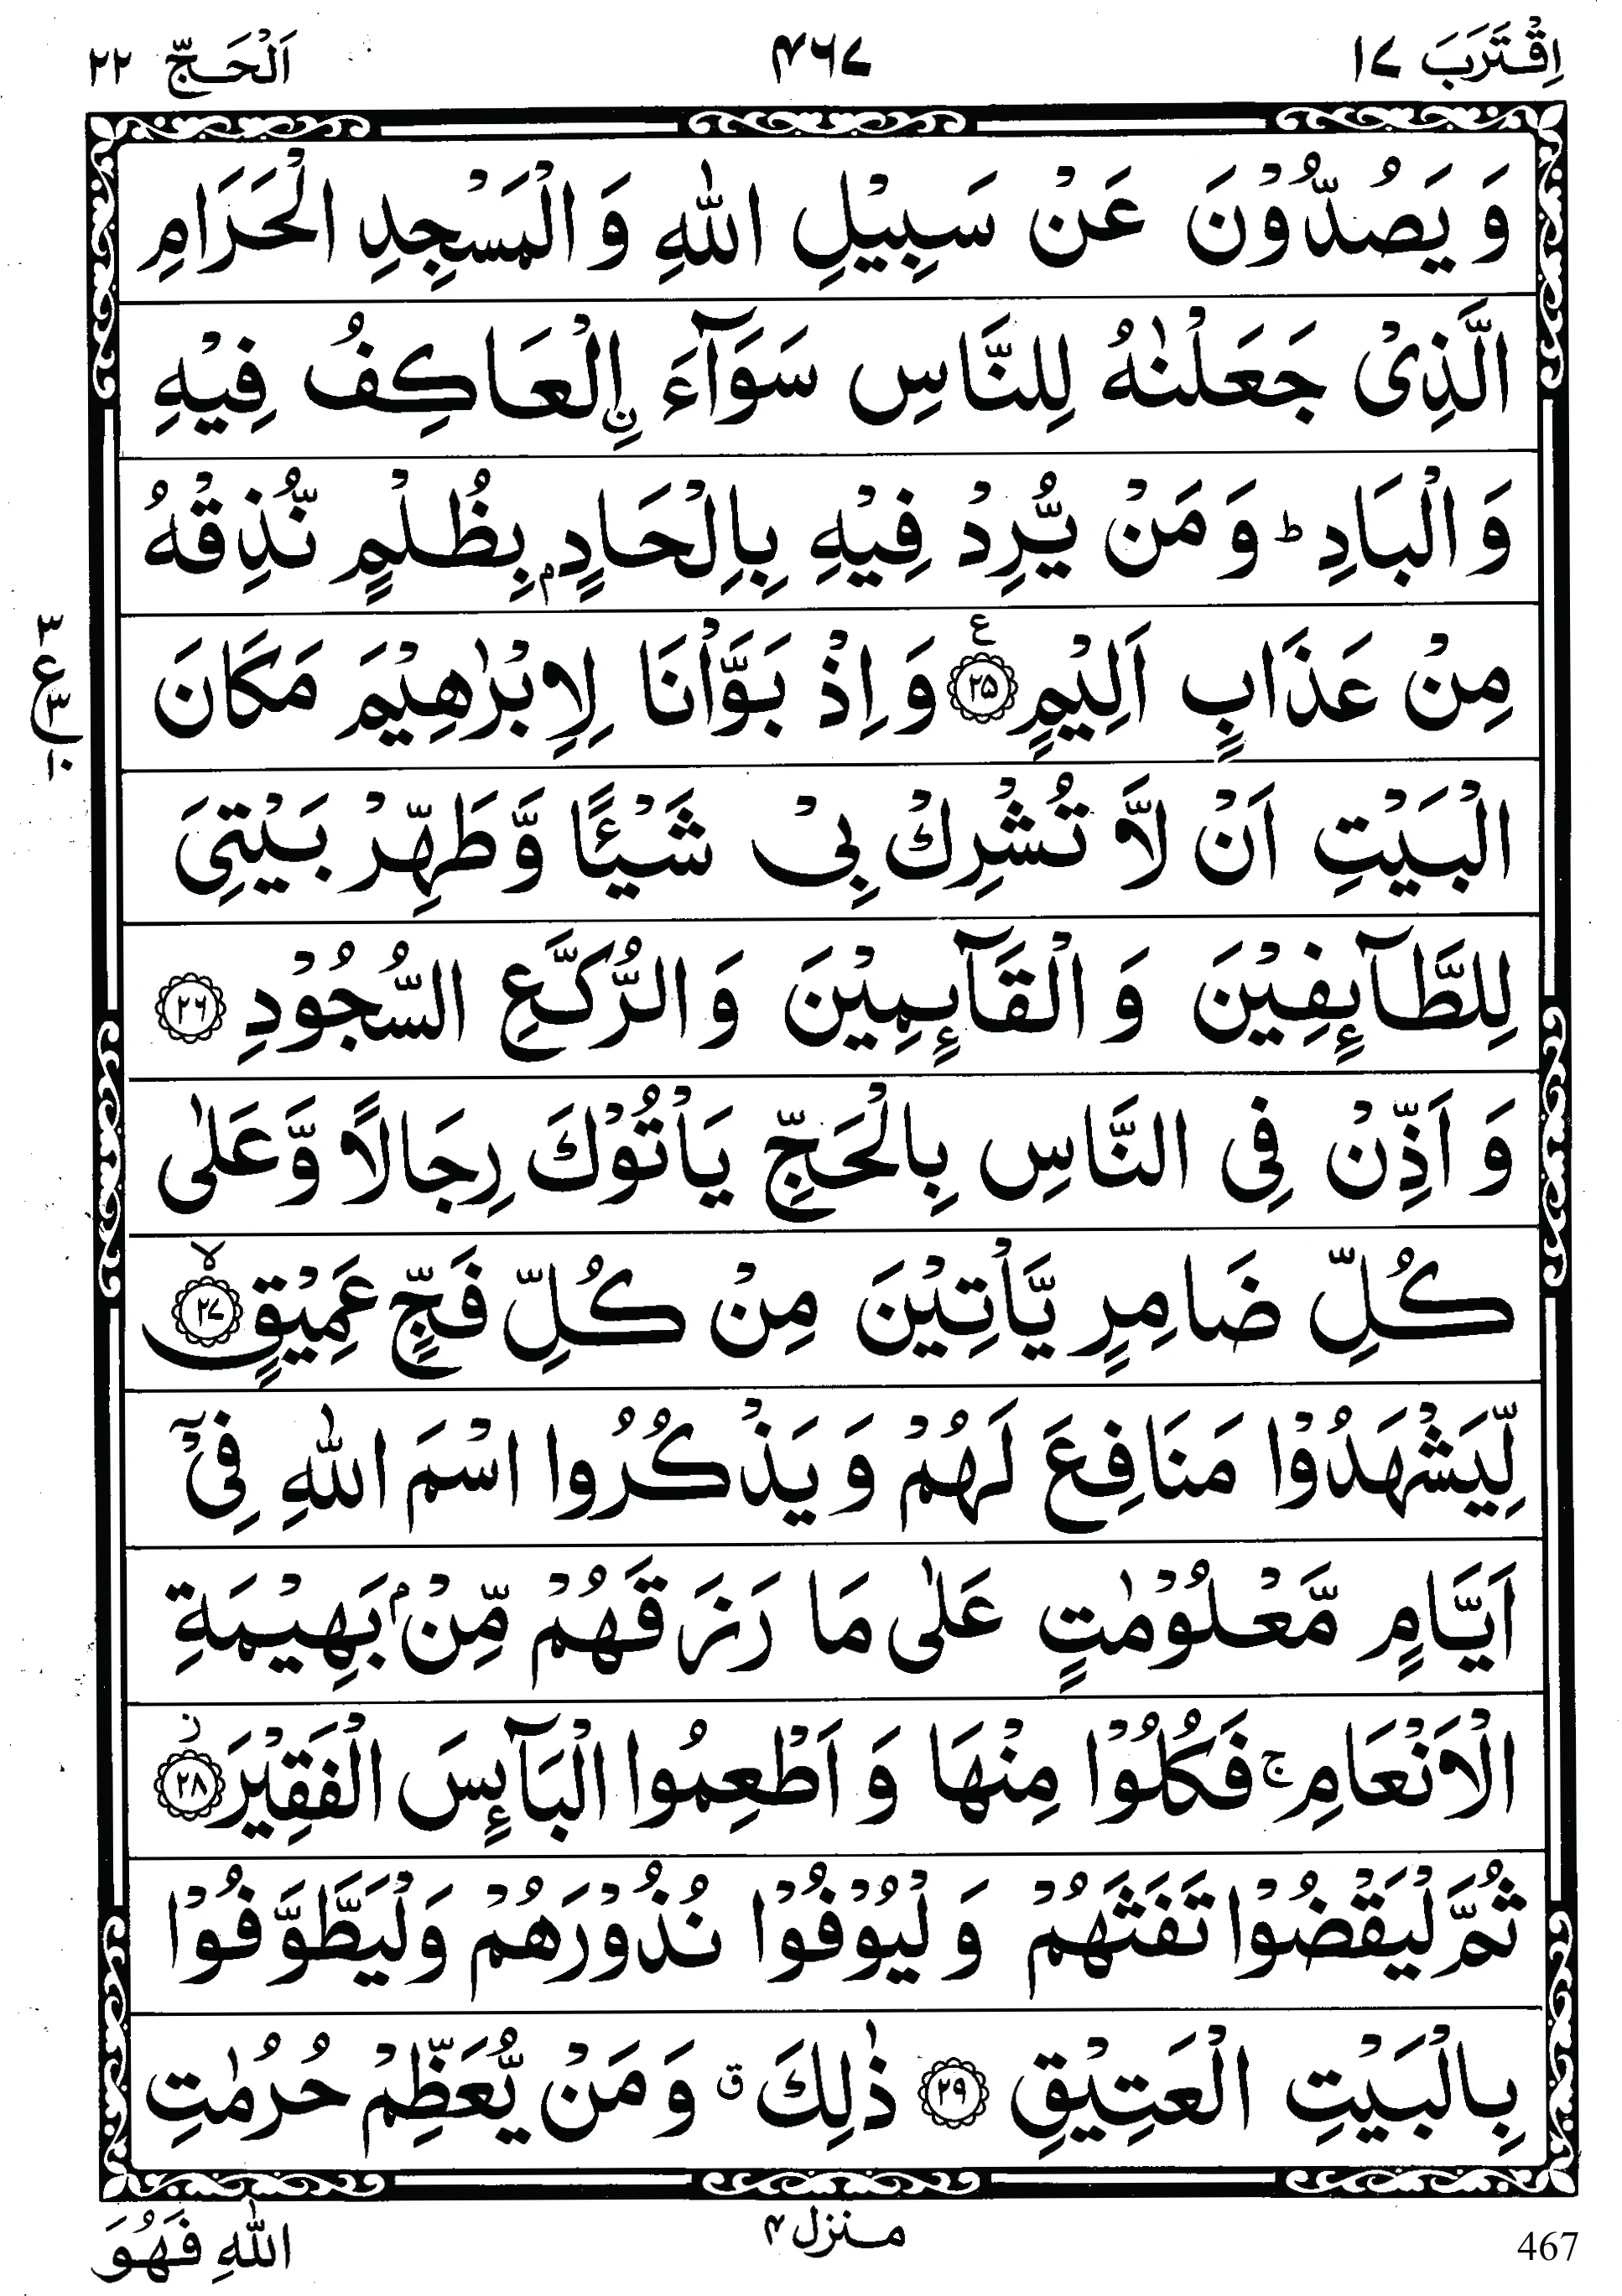 اِقْتَرَبَ ١٧ ٤٦٧ اَلْحَجّ ٢٢
وَ يَصُدُّوْنَ عَنْ سَبِيْلِ اللّٰهِ وَ الْمَسْجِدِ الْحَرَامِ
الَّذِىْ جَعَلْنٰهُ لِلنَّاسِ سَوَآءَ ۨالْعَاكِفُ فِيْهِ
وَ الْبَادِ ؕ وَ مَنْ يُّرِدْ فِيْهِ بِاِلْحَادٍۭ بِظُلْمٍ نُّذِقْهُ
مِنْ عَذَابٍ اَلِيْمٍ ࣖ ﴿٢٥﴾ وَ اِذْ بَوَّاْنَا لِاِبْرٰهِيْمَ مَكَانَ
٣
ع
٣
١٠
الْبَيْتِ اَنْ لَّا تُشْرِكْ بِىْ شَيْـًٔا وَّ طَهِّرْ بَيْتِىَ
لِلطَّآئِفِيْنَ وَ الْقَآئِمِيْنَ وَ الرُّكَّعِ السُّجُوْدِ ﴿٢٦﴾
وَ اَذِّنْ فِى النَّاسِ بِالْحَجِّ يَاْتُوْكَ رِجَالًا وَّ عَلٰى
كُلِّ ضَامِرٍ يَّاْتِيْنَ مِنْ كُلِّ فَجٍّ عَمِيْقٍ ۙ﴿٢٧﴾
لِّيَشْهَدُوْا مَنَافِعَ لَهُمْ وَ يَذْكُرُوا اسْمَ اللّٰهِ فِىْۤ
اَيَّامٍ مَّعْلُوْمٰتٍ عَلٰى مَا رَزَقَهُمْ مِّنْۢ بَهِيْمَةِ
الْاَنْعَامِ ۚ فَكُلُوْا مِنْهَا وَ اَطْعِمُوا الْبَآئِسَ الْفَقِيْرَ ؗ﴿٢٨﴾
ثُمَّ لْيَقْضُوْا تَفَثَهُمْ وَ لْيُوْفُوْا نُذُوْرَهُمْ وَ لْيَطَّوَّفُوْا
بِالْبَيْتِ الْعَتِيْقِ ﴿٢٩﴾ ذٰلِكَ ۗ وَ مَنْ يُّعَظِّمْ حُرُمٰتِ
اللّٰهِ فَهُوَ
منزل ٤
467